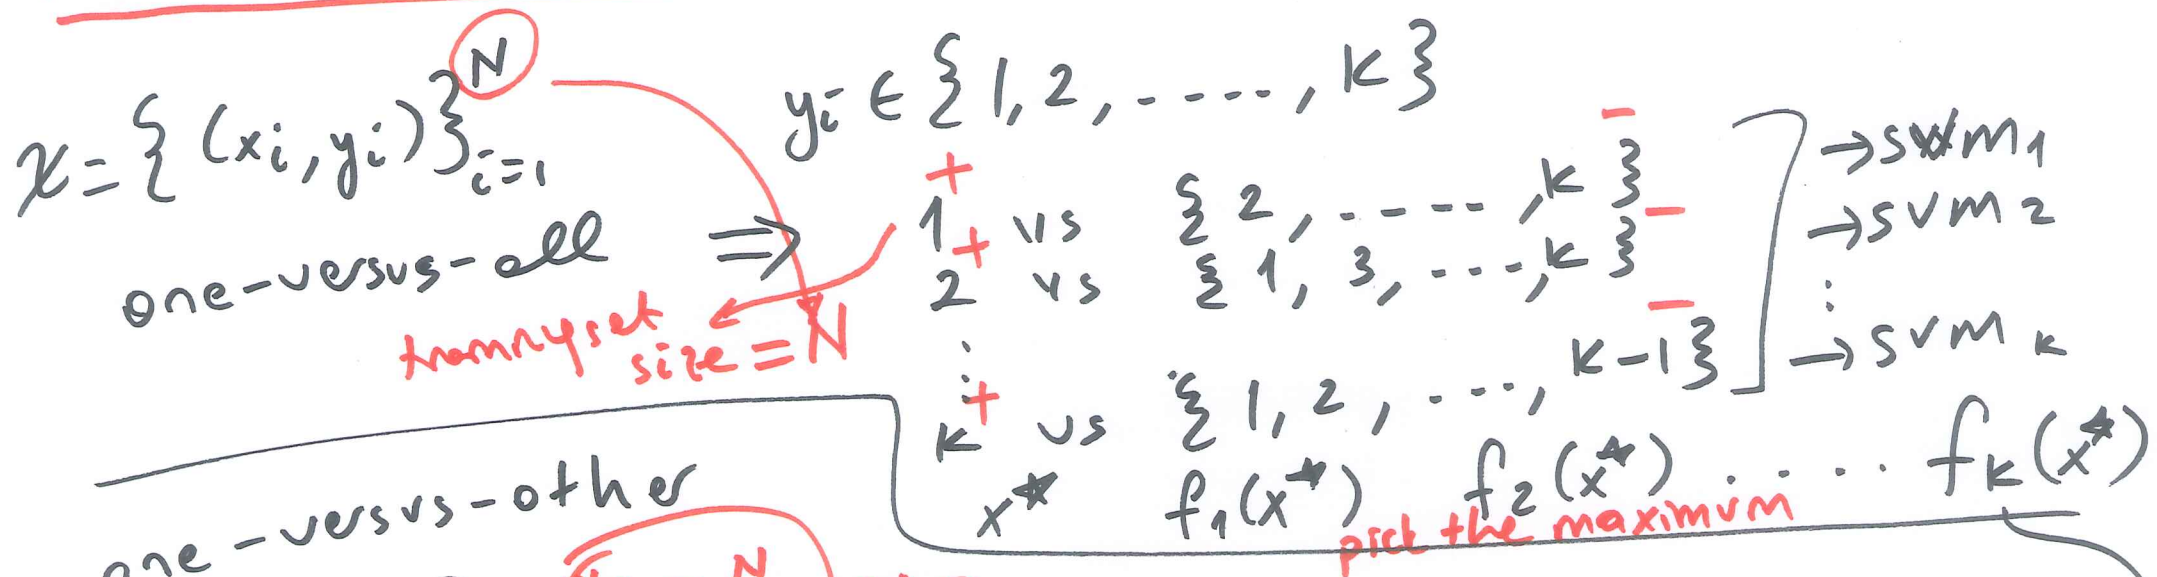 X = {(xi, yi)}_{i=1}^{N}    yi ∈ {1, 2, ....., K}
one-versus-all ⇒
+ 1 vs {2, ....., K} − → SVM1
+ 2 vs {1, 3, ...., K} − → SVM2
⋮ ⋮
+ K vs {1, 2, ...., K-1} − → SVM K
size = N
x* f1(x*) f2(x*) ..... fK(x*)
pick the maximum
one-versus-other
N